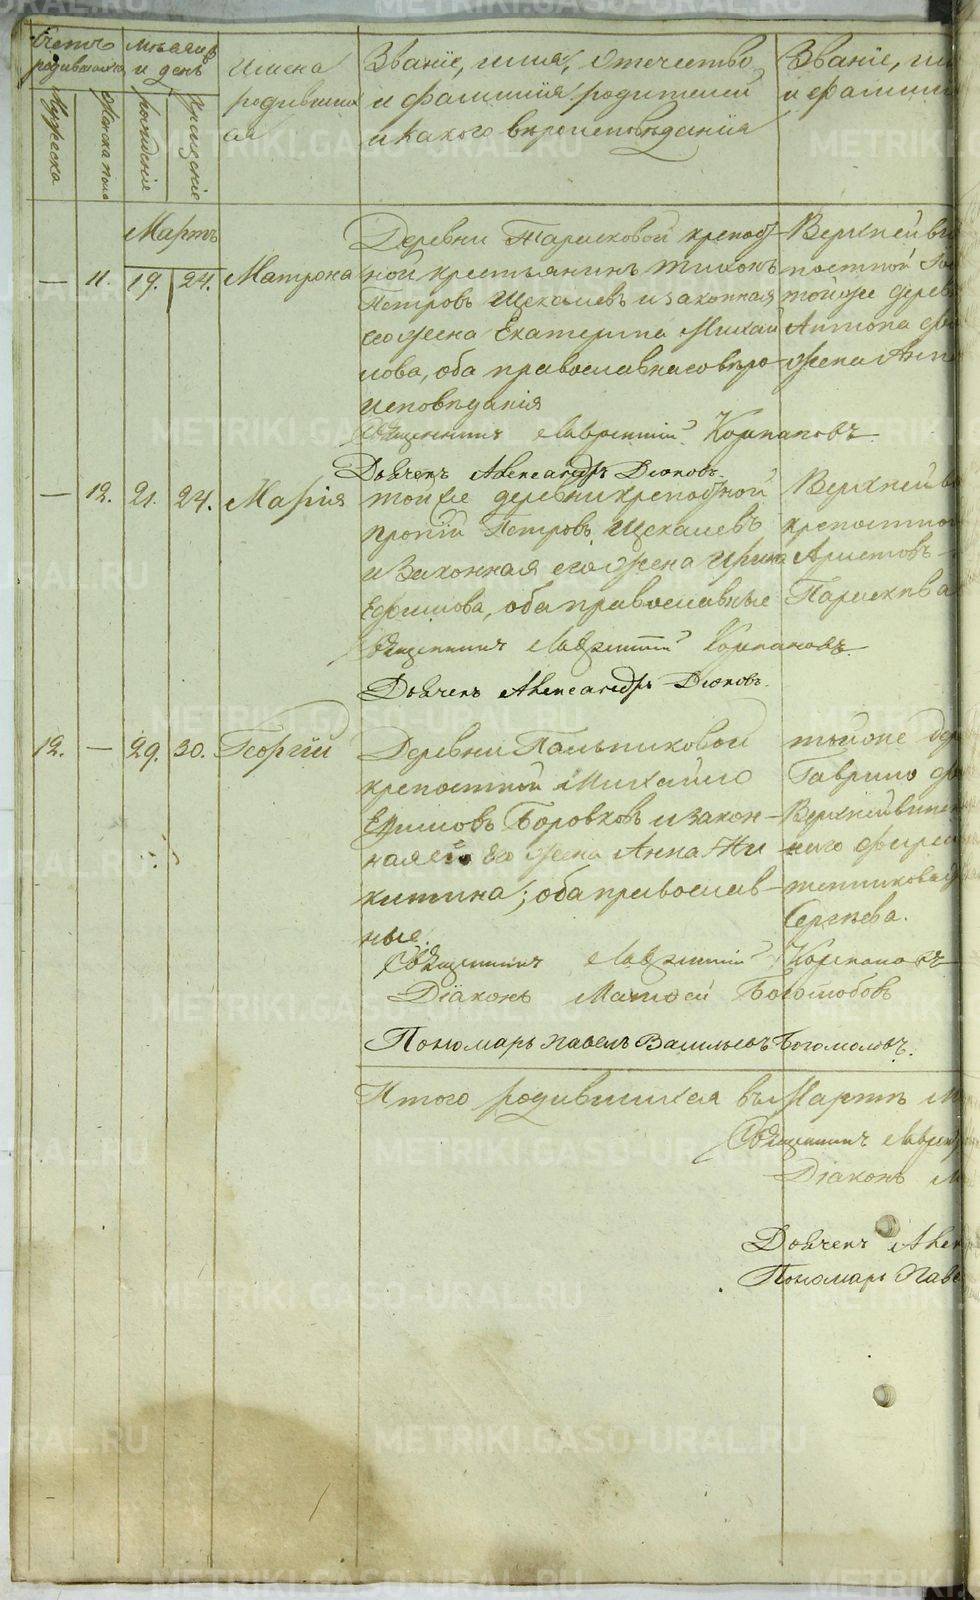 Счетъ родившихся
Мужеска
Женска пола
Мѣсяцъ и день
рожденіе
крещеніе
Имена
родивших
ся
Званіе, имя, отечество
и фамилія родителей
и какого вѣроисповѣданія
Званіе,
и фамил
Мартъ
— 11. 19. 24. Матрона
Деревни Тарасковой крепост-
ной крестьянинъ Тихонъ
Петровъ Щекалевъ и законная
его жена Екатерина Михай
лова, оба православнаго вѣро-
исповѣданія
Верхней
постной
той же дерев
Антона
жена
Священникъ Лаврентий Корпаковъ
Дьячекъ Александръ Дюковъ
— 12. 21. 24. Марія
той же деревни крепостной
Петровъ Щекалевъ
и законная его жена Ирина
Ефимова, оба православные
Верхней
крепостно
Аристовъ
Параскева
Священникъ Лаврентий Корпаковъ
Дьячекъ Александръ Дюковъ
12. — 29. 30. Георгій
Деревни Пальниковой
крепостной Михайло
Ефимовъ Боровковъ и закон-
ная его жена Анна Ни
китина; оба православ-
ные.
той же де
Гаврило
Верхней
Сергѣева.
Священникъ Лаврентий Корпаковъ
Діаконъ Матѳей
Пономарь Павелъ Васильевъ Богомоловъ.
Итого родившихся въ Мартѣ М
Священникъ Лаврен
Діаконъ М
Дьячекъ Алек
Пономарь Паве
METRIKI.GASO-URAL.RU